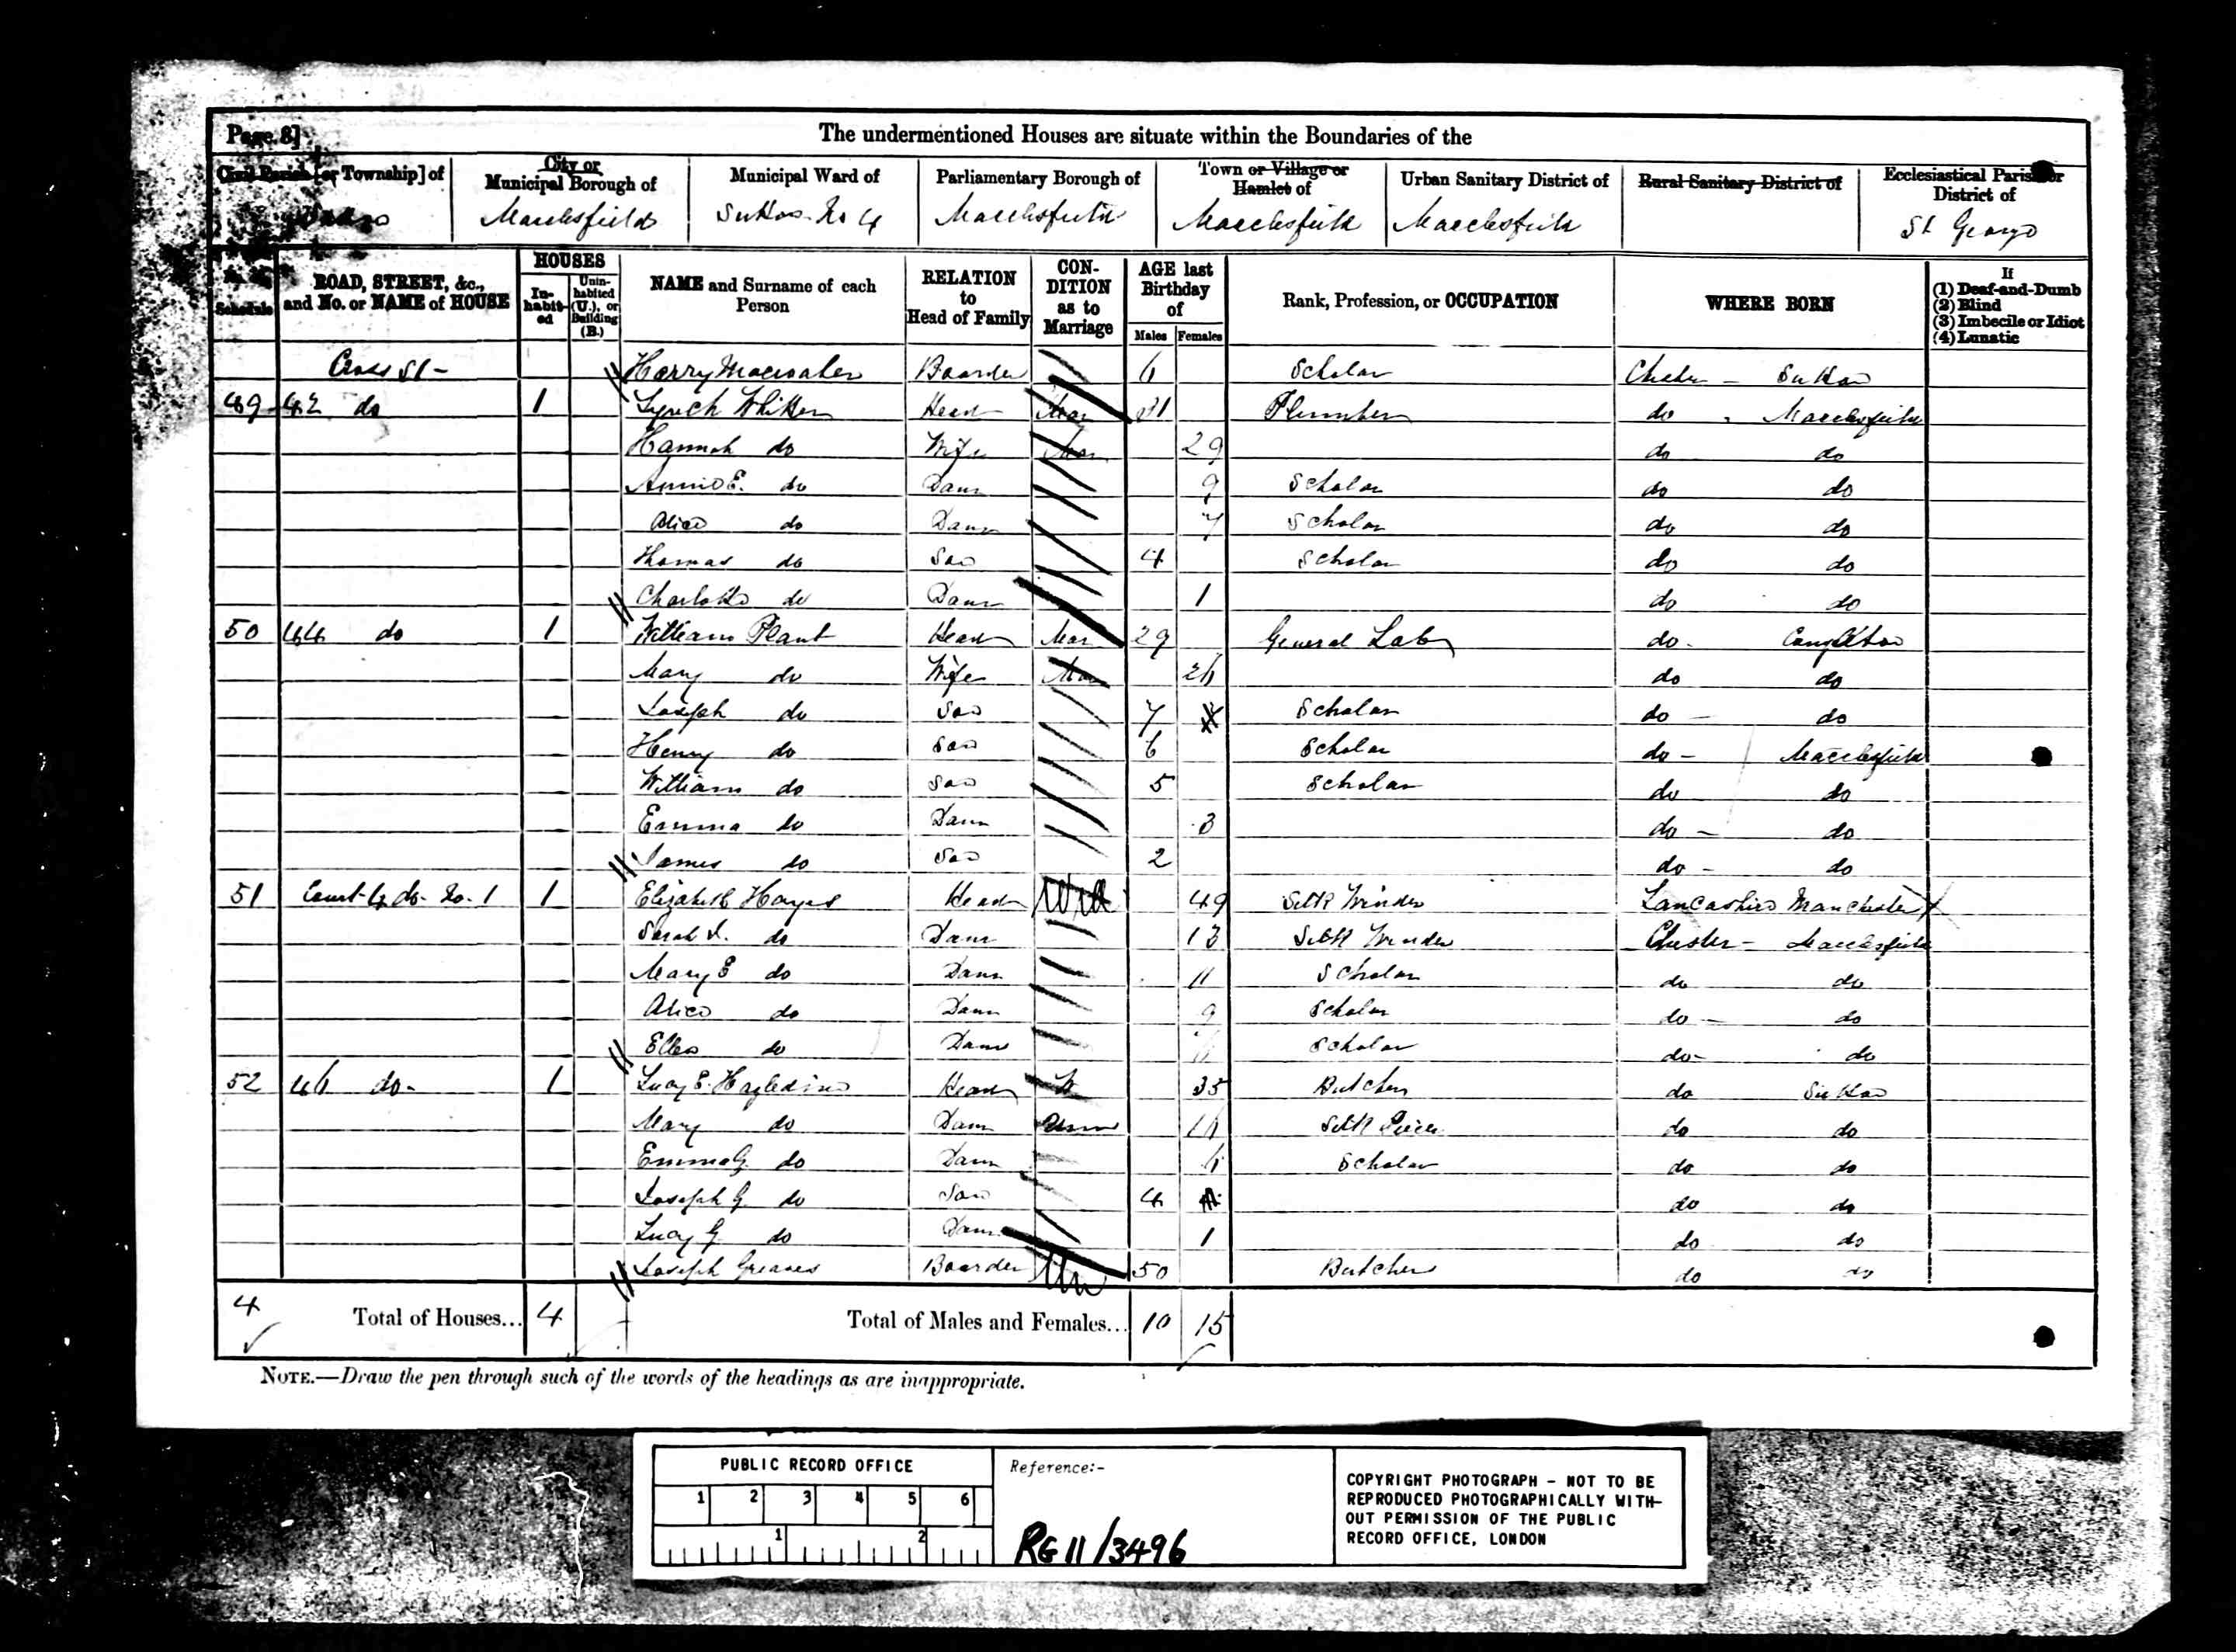 Page 8]
The undermentioned Houses are situate within the Boundaries of the
Civil Parish [or Township] of
City or Municipal Borough of
Macclesfield
Municipal Ward of
Sutton No 4
Parliamentary Borough of
Macclesfield
Town or Village or Hamlet of
Macclesfield
Urban Sanitary District of
Macclesfield
Rural Sanitary District of
Ecclesiastical Parish or District of
St George
Schedule
ROAD, STREET, &c., and No. or NAME of HOUSE
HOUSES
In-habit-ed
Unin-habited (U.), or Building (B.)
NAME and Surname of each Person
RELATION to Head of Family
CON-DITION as to Marriage
AGE last Birthday of
Males Females
Rank, Profession, or OCCUPATION
WHERE BORN
If
(1) Deaf-and-Dumb
(2) Blind
(3) Imbecile or Idiot
(4) Lunatic
Cross St - Harry Boarder 6 Scholar Chester - Sutton
49 42 do 1 Head Mar 31 Plumber do Macclesfield
Hannah do Wife Mar 29 do do
Annie E. do Daur 9 Scholar do do
Alice do Daur 7 Scholar do do
Thomas do Son 4 Scholar do do
Charlotte do Daur 1 do do
50 44 do 1 William Plant Head Mar 29 General Labr do - Congleton
Mary do Wife Mar 26 do do
Joseph do Son 7 Scholar do - do
Henry do Son 6 Scholar do - Macclesfield
William do Son 5 Scholar do do
Emma do Daur 3 do - do
James do Son 2 do - do
51 Court 4 do - No. 1 1 Elizabeth Hayes Head Wid 49 Silk Winder Lancashire Manchester
Sarah J. do Daur 13 Silk Winder Chester - Macclesfield
Mary E do Daur 11 Scholar do do
Alice do Daur 9 Scholar do - do
Ellen do Daur Scholar do - do
52 46 do - 1 Lucy E. Hazledine Head W 35 Butcher do Sutton
Mary do Daur Unm 16 Silk Piecer do do
Emma G. do Daur 6 Scholar do do
Joseph G. do Son 4 do do
Lucy G. do Daur 1 do do
Joseph Greaves Boarder Un 50 Butcher do do
4 Total of Houses... 4 Total of Males and Females... 10 15
NOTE.—Draw the pen through such of the words of the headings as are inappropriate.
PUBLIC RECORD OFFICE
1 2 3 4 5 6
1 2
Reference:-
RG 11/3496
COPYRIGHT PHOTOGRAPH - NOT TO BE
REPRODUCED PHOTOGRAPHICALLY WITH-
OUT PERMISSION OF THE PUBLIC
RECORD OFFICE, LONDON